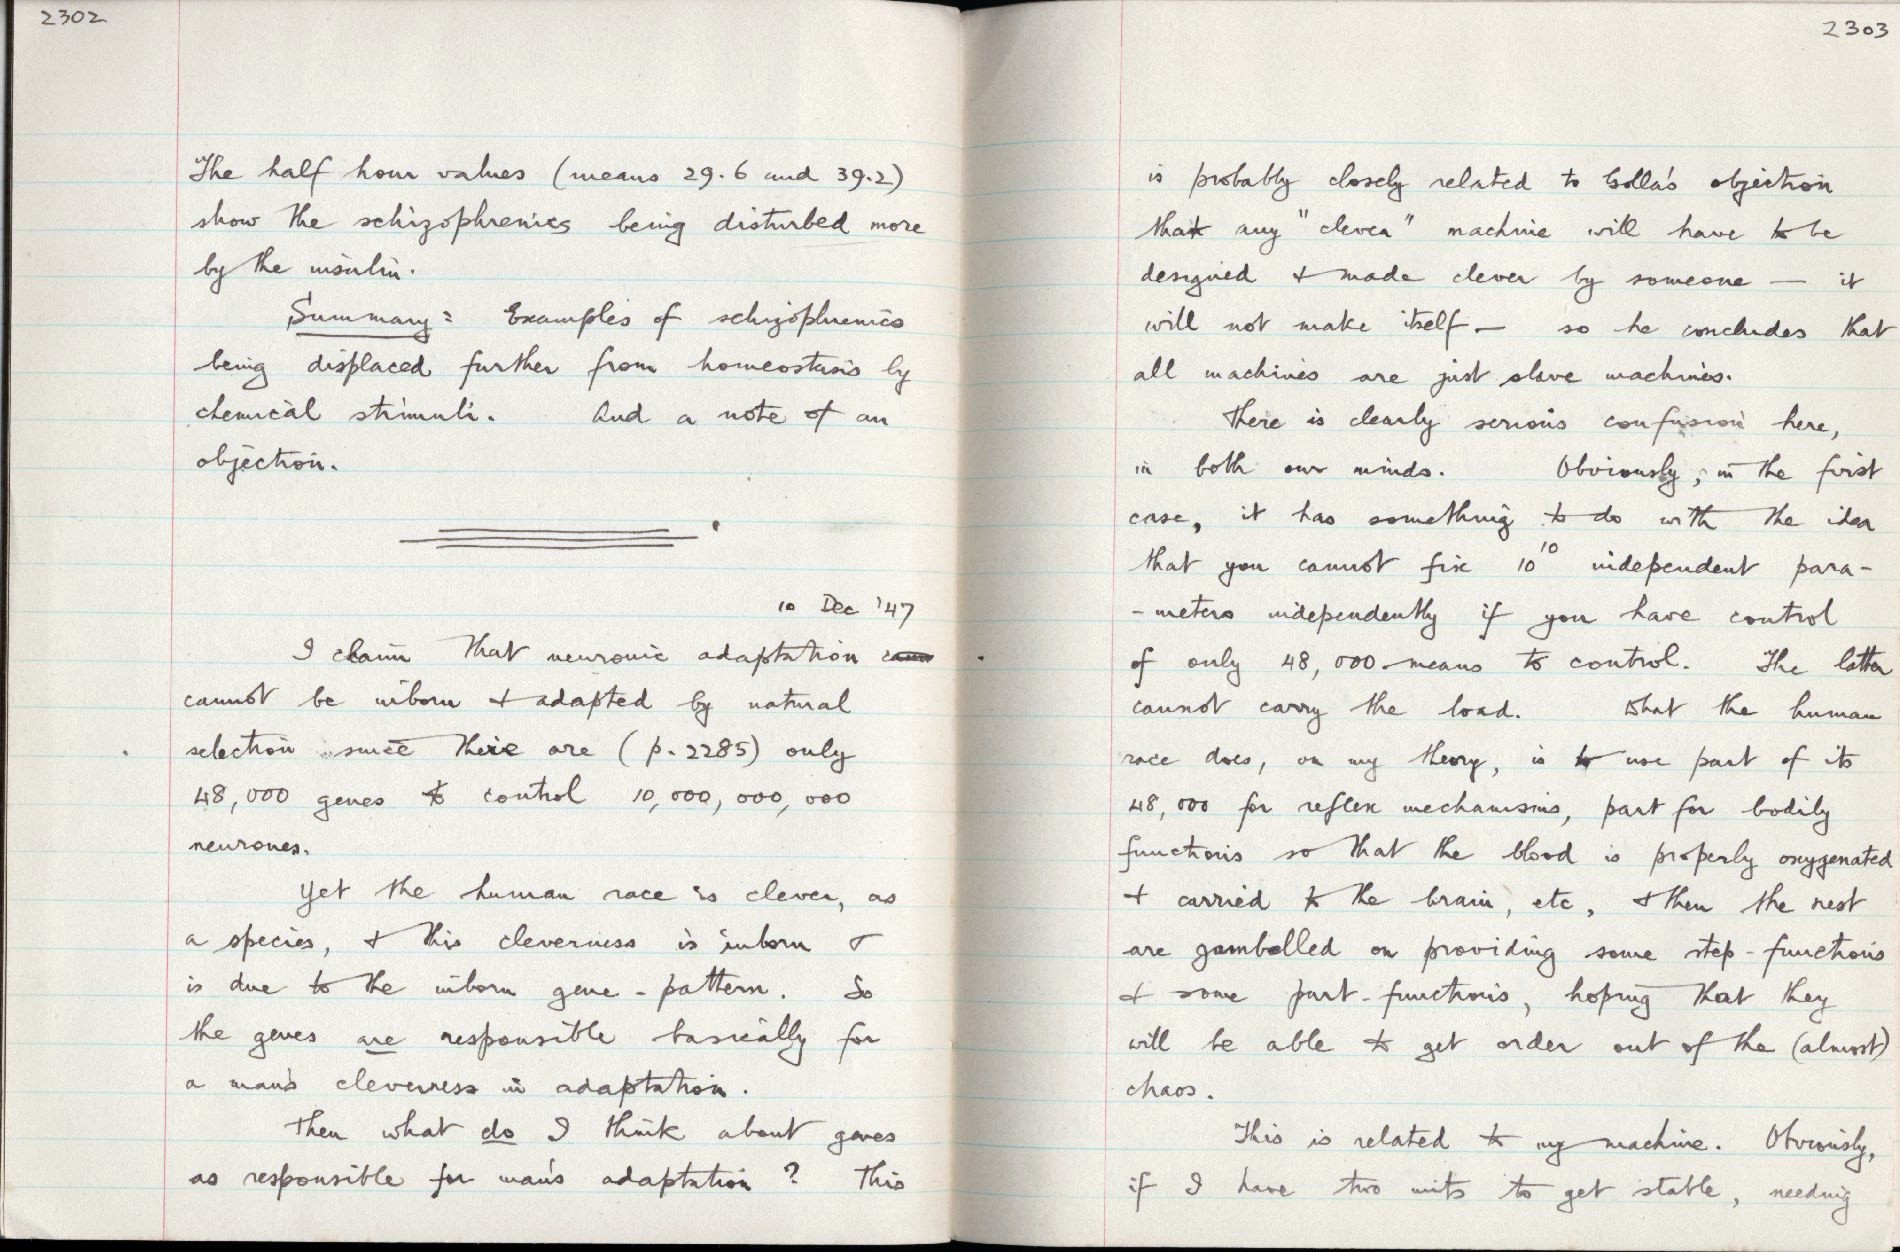 2302
The half hour values (means 29.6 and 39.2)
show the schizophrenics being disturbed more
by the insulin.
Summary: Examples of schizophrenics
being displaced further from homeostasis by
chemical stimuli. And a note of an
objection.
10 Dec '47
I claim that neuronic adaptation
cannot be inborn & adapted by natural
selection since there are (p. 2285) only
48,000 genes to control 10,000,000,000
neurones.
Yet the human race is clever, as
a species, & this cleverness is inborn &
is due to the inborn gene-pattern. So
the genes are responsible basically for
a man's cleverness in adaptation.
Then what do I think about genes
as responsible for man's adaptation? This
2303
is probably closely related to Golla's objection
that any "clever" machine will have to be
designed & made clever by someone — it
will not make itself — so he concludes that
all machines are just slave machines.
There is clearly serious confusion here,
in both our minds. Obviously, in the first
case, it has something to do with the idea
that you cannot fix 10¹⁰ independent para-
-meters independently if you have control
of only 48,000 means to control. The latter
cannot carry the load. What the human
race does, on my theory, is to use part of its
48,000 for reflex mechanisms, part for bodily
functions so that the blood is properly oxygenated
& carried to the brain, etc, & then the rest
are gambolled on providing some step-functions
& some part-functions, hoping that they
will be able to get order out of the (almost)
chaos.
This is related to my machine. Obviously,
if I have two units to get stable, needing